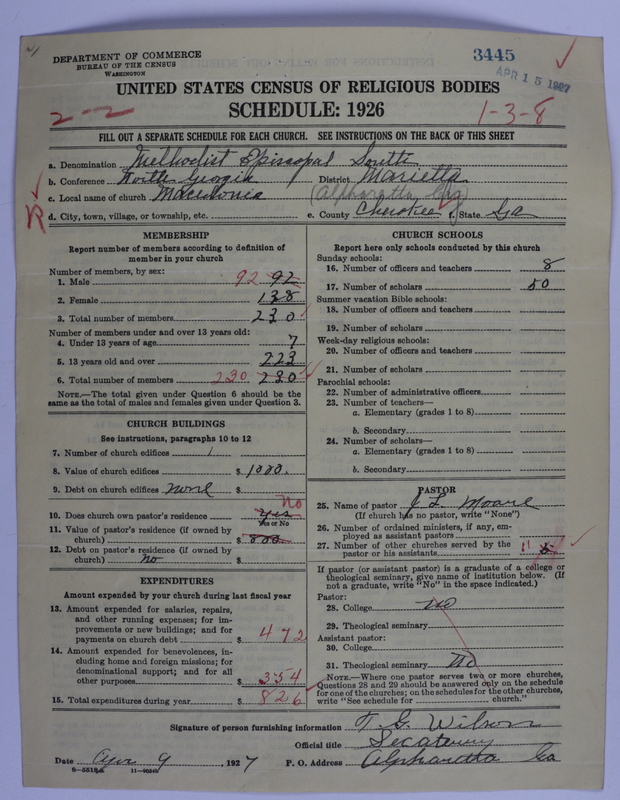 DEPARTMENT OF COMMERCE
BUREAU OF THE CENSUS
WASHINGTON
3445
APR 15 1927
UNITED STATES CENSUS OF RELIGIOUS BODIES
SCHEDULE: 1926
2-2
1-3-8
FILL OUT A SEPARATE SCHEDULE FOR EACH CHURCH. SEE INSTRUCTIONS ON THE BACK OF THIS SHEET
a. Denomination Methodist Episcopal South
b. Conference North Georgia District Marietta
c. Local name of church Macedonia (Alpharetta Ga)
R
d. City, town, village, or township, etc. e. County Cherokee f. State Ga
MEMBERSHIP
Report number of members according to definition of
member in your church
Number of members, by sex:
1. Male 92 92
2. Female 138
3. Total number of members 230
Number of members under and over 13 years old:
4. Under 13 years of age 7
5. 13 years old and over 223
6. Total number of members 230 230
NOTE.—The total given under Question 6 should be the
same as the total of males and females given under Question 3.
CHURCH BUILDINGS
See instructions, paragraphs 10 to 12
7. Number of church edifices 1
8. Value of church edifices $ 1000.
9. Debt on church edifices none $
10. Does church own pastor's residence yes no
Yes or No
11. Value of pastor's residence (if owned by
church) $ 800
12. Debt on pastor's residence (if owned by
church) no $
EXPENDITURES
Amount expended by your church during last fiscal year
13. Amount expended for salaries, repairs,
and other running expenses; for im-
provements or new buildings; and for
payments on church debt $ 472
14. Amount expended for benevolences, in-
cluding home and foreign missions; for
denominational support; and for all
other purposes $ 354
15. Total expenditures during year $ 826
CHURCH SCHOOLS
Report here only schools conducted by this church
Sunday schools:
16. Number of officers and teachers 8
17. Number of scholars 50
Summer vacation Bible schools:
18. Number of officers and teachers
19. Number of scholars
Week-day religious schools:
20. Number of officers and teachers
21. Number of scholars
Parochial schools:
22. Number of administrative officers
23. Number of teachers—
a. Elementary (grades 1 to 8)
b. Secondary
24. Number of scholars—
a. Elementary (grades 1 to 8)
b. Secondary
PASTOR
25. Name of pastor J. L. Moore
(If church has no pastor, write "None")
26. Number of ordained ministers, if any, em-
ployed as assistant pastors
27. Number of other churches served by the
pastor or his assistants
If pastor (or assistant pastor) is a graduate of a college or
theological seminary, give name of institution below. (If
not a graduate, write "No" in the space indicated.)
Pastor:
28. College no
29. Theological seminary
Assistant pastor:
30. College
31. Theological seminary no
NOTE.—Where one pastor serves two or more churches,
Questions 28 and 29 should be answered only on the schedule
for one of the churches; on the schedules for the other churches,
write "See schedule for church."
Signature of person furnishing information T. G. Wilson
Official title Secatewry
Date Apr 9, 1927 P. O. Address Alpharetta Ga
8-5518a 11-9054b